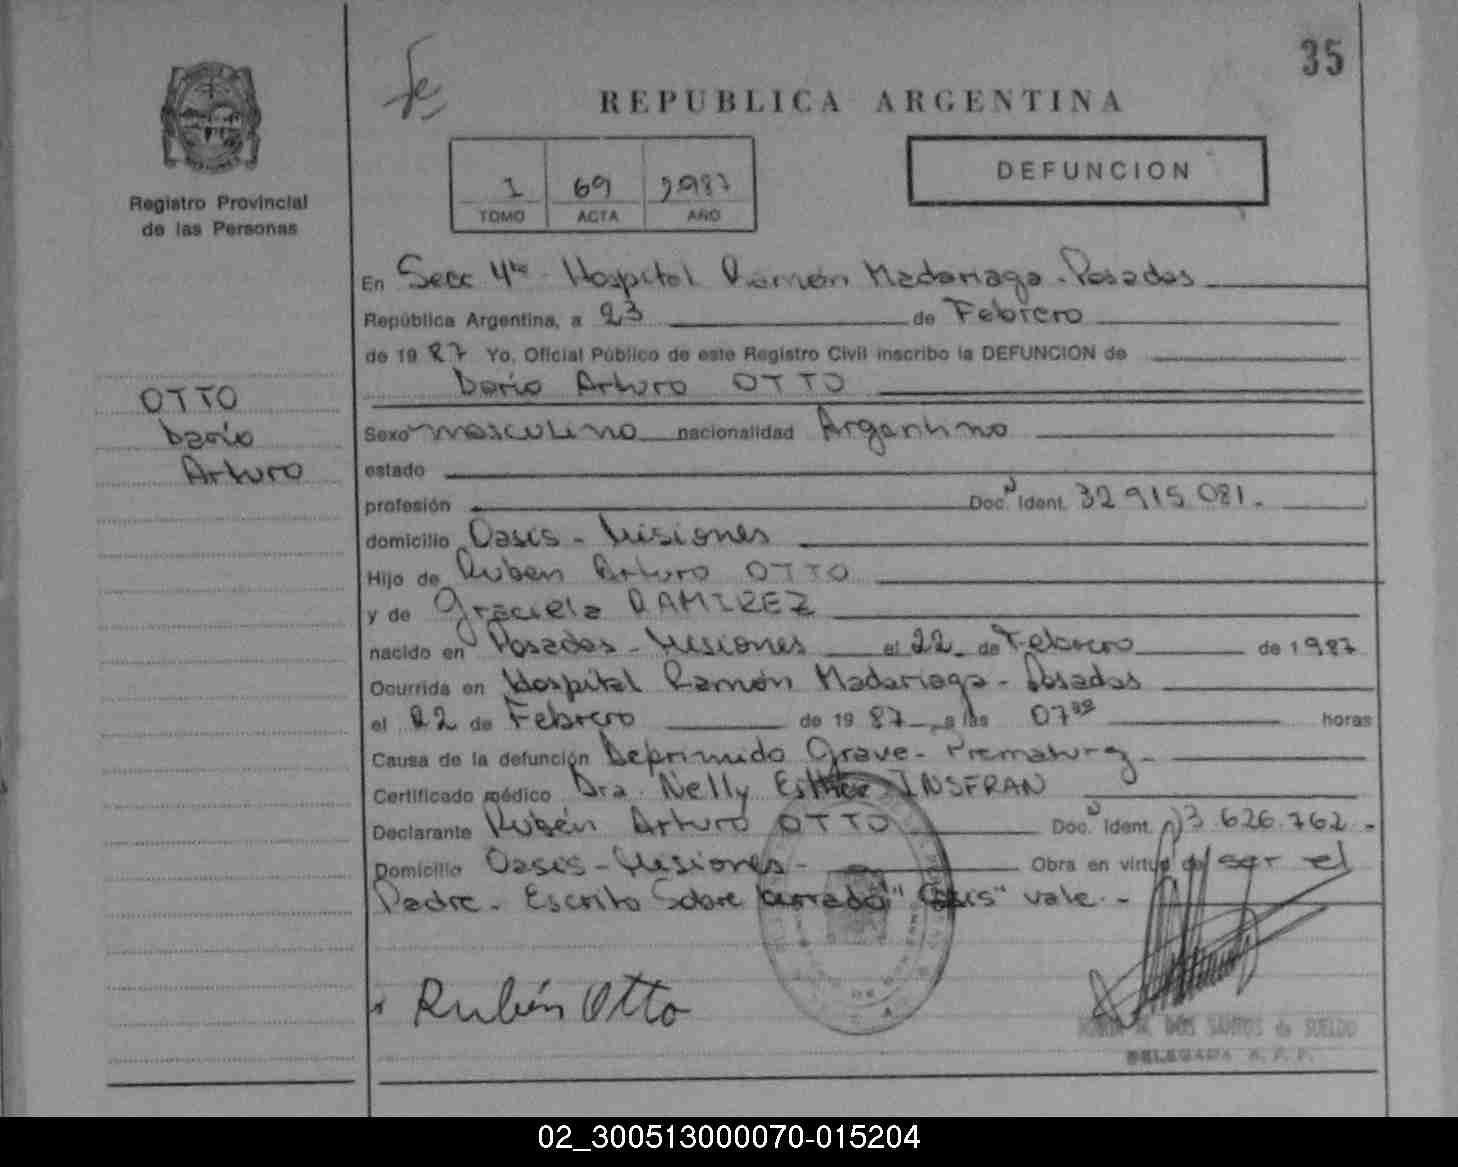 35
REPUBLICA ARGENTINA
1 69 1987
TOMO ACTA AÑO
DEFUNCION
Registro Provincial
de las Personas
OTTO
Dario
Arturo
En Secc 4ta - Hospital Ramón Madariaga - Posadas
República Argentina, a 23 de Febrero
de 1987 Yo, Oficial Público de este Registro Civil inscribo la DEFUNCION de
Dario Arturo OTTO
Sexo masculino nacionalidad Argentino
estado
profesión Doc. Ident. 32 915 081.
domicilio Oasis - Misiones
Hijo de Ruben Arturo OTTO
y de Graciela RAMIREZ
nacido en Posadas - Misiones el 22 de Febrero de 1987
Ocurrida en Hospital Ramón Madariaga - Posadas
el 22 de Febrero de 1987 a las 07 horas
Causa de la defunción Deprimido Grave - Prematurez -
Certificado médico Dra. Nelly Esther INSFRAN
Declarante Rubén Arturo OTTO Doc. Ident. 13 626.762.-
Domicilio Oasis - Misiones - Obra en virtud de ser el
Padre. Escrito Sobre borrado "Oasis" vale.-
Rubén Otto
DOS SANTOS de SUELDO
DELEGADA R. P. P.
02_300513000070-015204